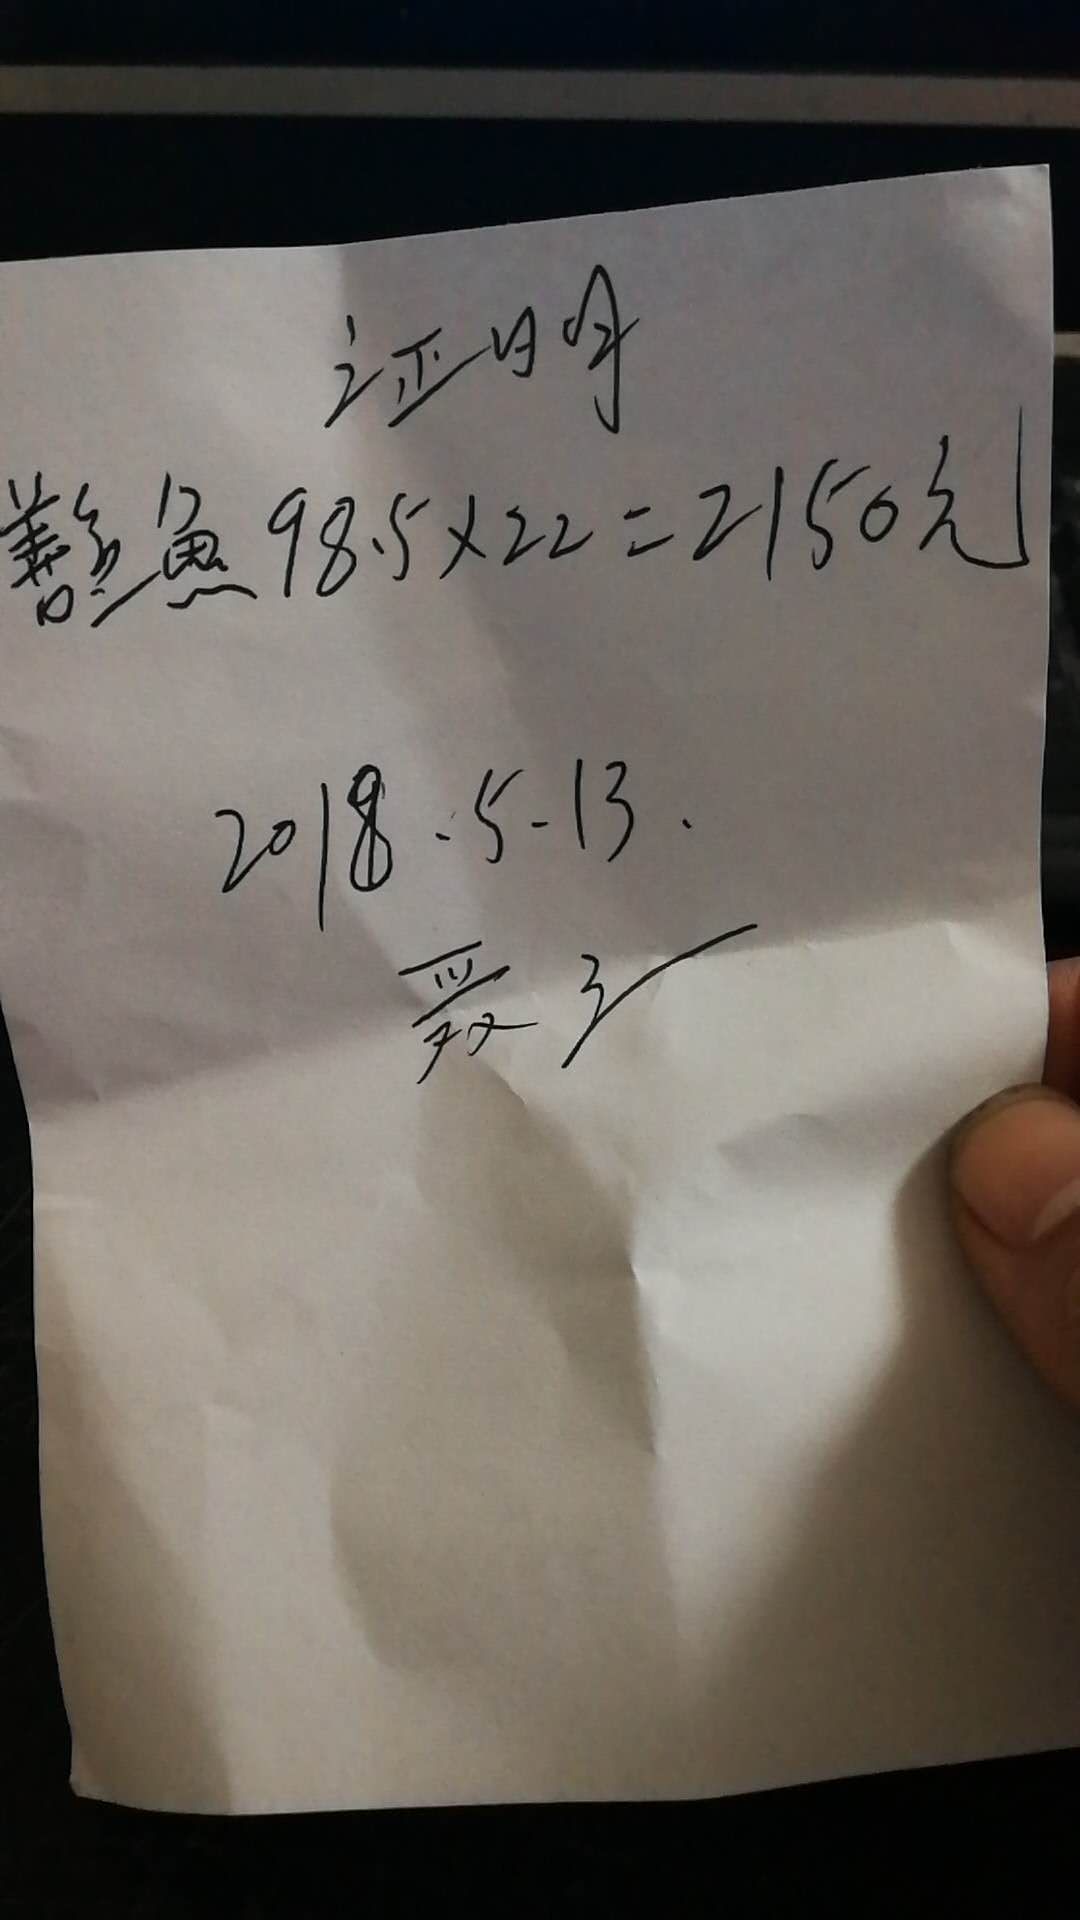 证明
鱔魚 98.5×22=2150元
2018.5-13.